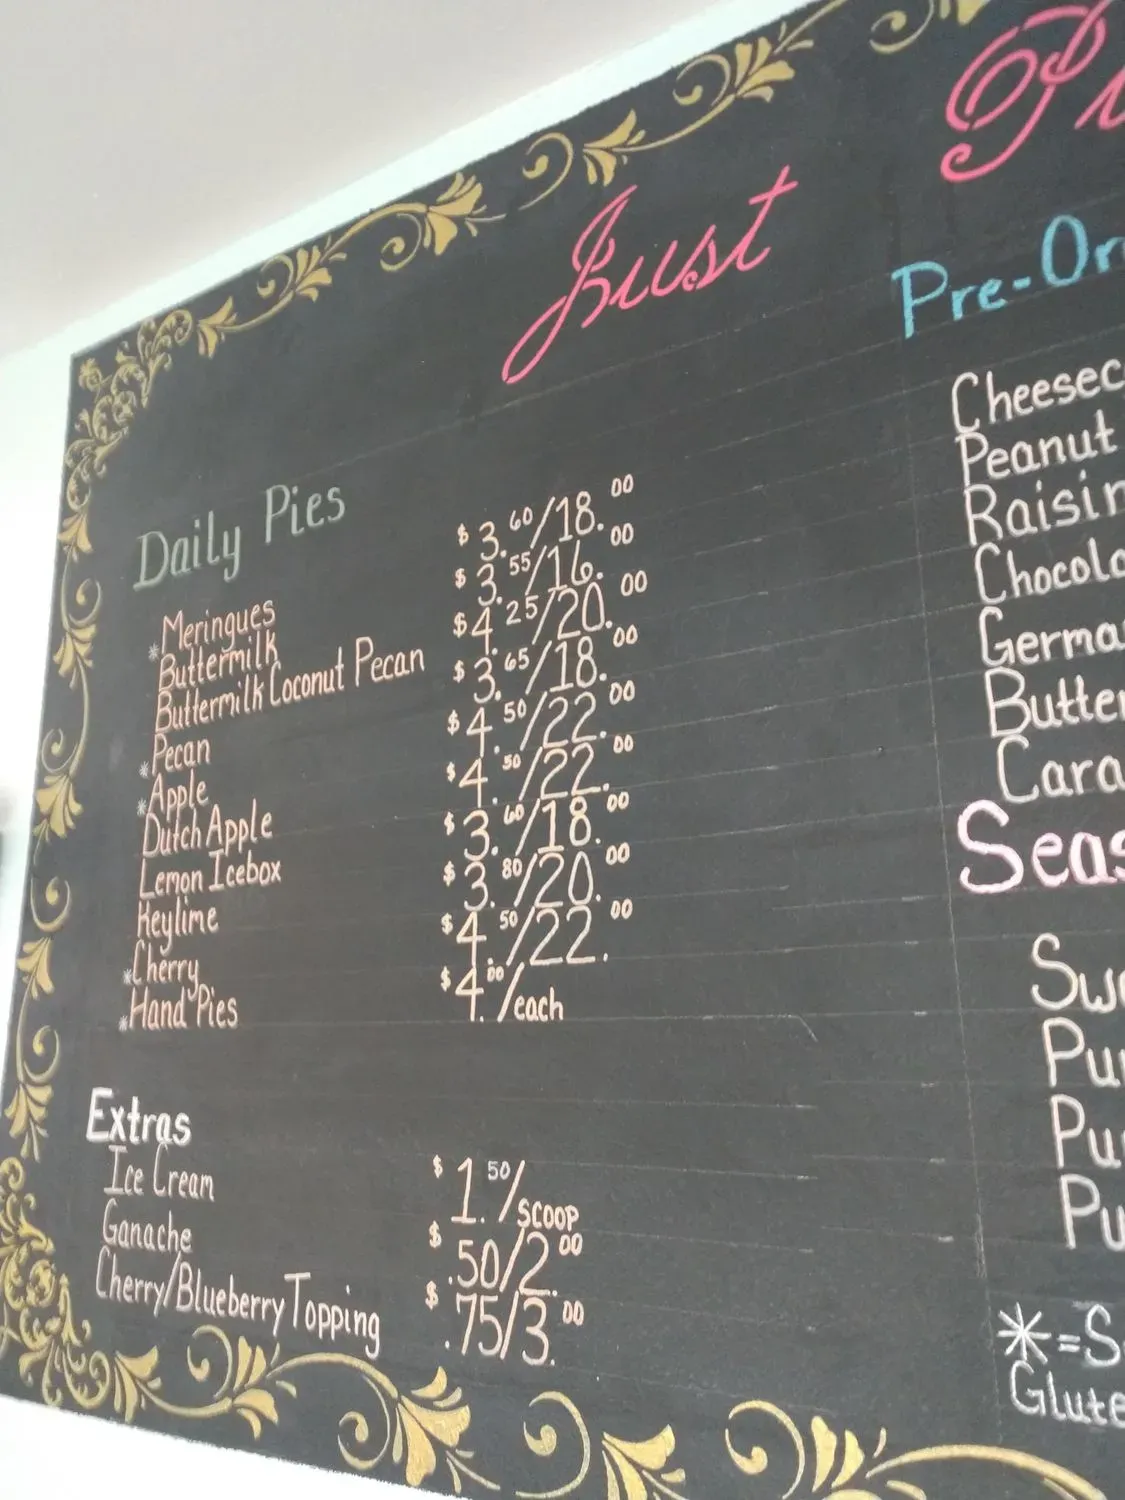 Just
Daily Pies
*Meringues $3.60/18.00
Buttermilk $3.55/16.00
Buttermilk Coconut Pecan $4.25/20.00
*Pecan $3.65/18.00
*Apple $4.50/22.00
Dutch Apple $4.50/22.00
Lemon Icebox $3.60/18.00
Keylime $3.80/20.00
*Cherry $4.50/22.00
*Hand Pies $4.00/each
Extras
Ice Cream $1.50/scoop
Ganache $.50/2.00
Cherry/Blueberry Topping $.75/3.00
Pre-Or
Cheesec
Peanut
Raisin
Chocola
Germa
Butter
Cara
Seas
Sw
Pu
Pu
Pu
*=S
Glute